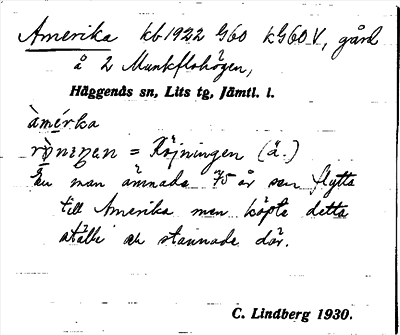 Amerika kb 1922 G60 kG60V, gård
å 2 Munkflohögen,
Häggenås sn, Lits tg, Jämtl. l.
àmérka
rò̱nin̄en = Röjningen (ä.)
En man ämnade 75 år sen flytta
till Amerika men köpte detta
ställe och stannade där.
C. Lindberg 1930.